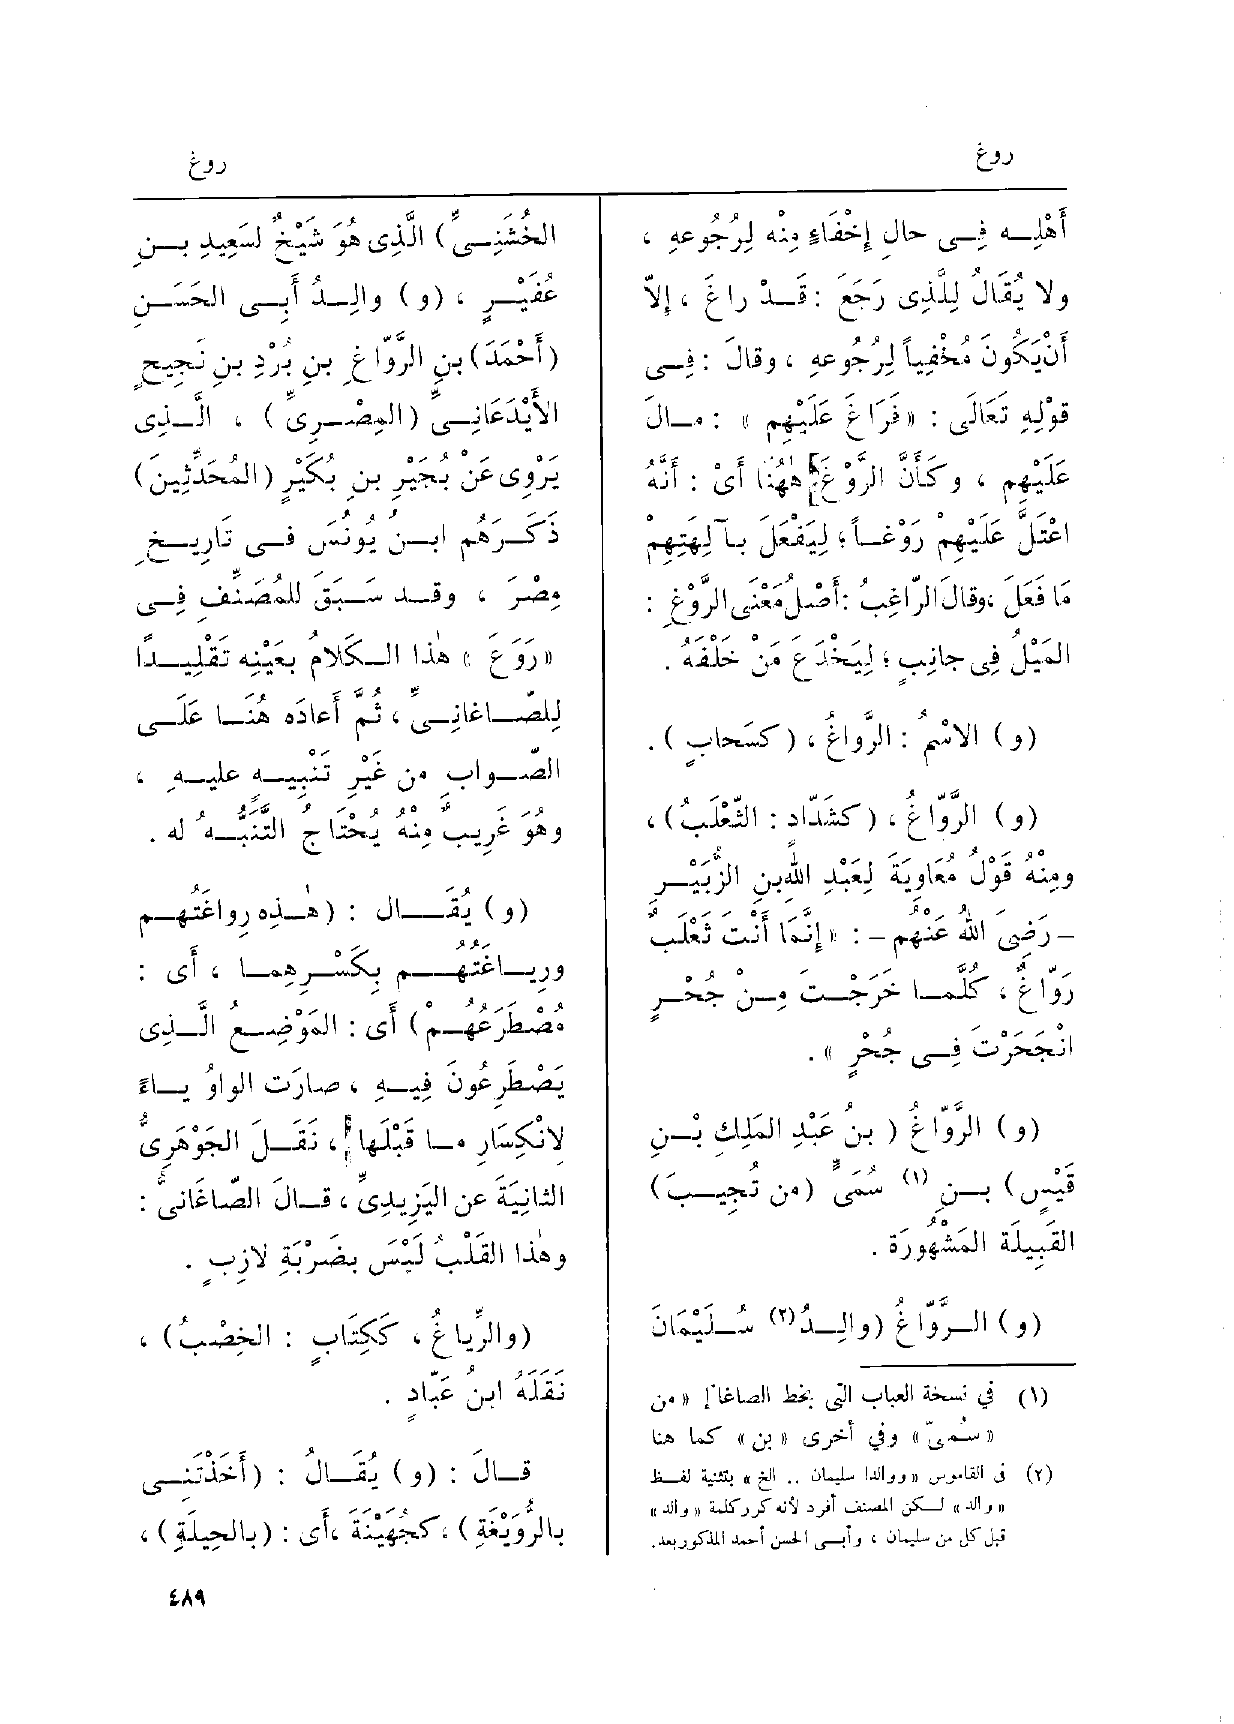 روغ
روغ
أَهْلِه فِى حالِ إِخْفَاءٍ مِنْه لِرُجُوعِهِ ،
ولا يُقَالُ لِلَّذِى رَجَعَ : قَدْ راغَ ، إِلاّ
أَنْ يَكُونَ مُخْفِياً لِرُجُوعِهِ ، وقالَ : فِى
قولِهِ تَعَالَى : « فَرَاغَ عَلَيْهِم » : مالَ
عَلَيْهِم ، وكَأَنَّ الرَّوْغَ هٰهُنَا أَىْ : أَنَّهُ
اعْتَلَّ عَلَيْهِمْ رَوْغاً ؛ لِيَفْعَلَ بآلِهَتِهِمْ
مَا فَعَلَ ، وقالَ الرّاغِبُ : أَصْلُ مَعْنَى الرَّوْغِ :
المَيْلُ فِى جانِبٍ ؛ لِيَخْدَعَ مَنْ خَلْفَهُ .
(و) الاسْمُ : الرَّواغُ ، ( كسَحابٍ ) .
(و) الرَّوّاغُ ، ( كشَدّاد : الثَّعْلَبُ ) ،
ومِنْهُ قَوْلُ مُعَاوِيَةَ لِعَبْدِ اللهِ بنِ الزُّبَيْرِ
– رَضِىَ اللهُ عَنْهُم – : « إِنَّمَا أَنْتَ ثَعْلَبٌ
رَوّاغٌ ، كُلَّما خَرَجْتَ مِنْ جُحْرٍ
انْجَحَرْتَ فِى جُحْرٍ » .
(و) الرَّوّاغُ ( بنُ عَبْدِ المَلِكِ بْنِ
قَيْسٍ ) بنِ (١) سُمَىٍّ ( من تُجِيبَ )
القَبِيلَةِ المَشْهُورَة .
(و) الرَّوّاغُ ( والِدُ (٢) سُلَيْمَانَ
(١) في نسخة العباب التى بخط الصاغا « من
« سُمىّ » وفي أخرى « بن » كما هنا
(٢) فى القاموس « ووالدا سليمان .. الخ » بتثنية لفظ
« والد » لكن المصنف أفرد لأنه كرر كلمة « والد »
قبل كل من سليمان ، وأبى الحسن أحمد المذكور بعد.
الخُشَنِىِّ ) الَّذِى هُوَ شَيْخٌ لسَعِيدِ بنِ
عُفَيْرٍ ، (و) والِدُ أَبِى الحَسَنِ
( أَحْمَدَ ) بنِ الرَّوّاغِ بنِ بُرْدِ بنِ نَجِيحٍ
الأَيْدَعَانِىِّ ( المِصْرِىِّ ) ، الَّذِى
يَرْوِى عَنْ بُجَيْرِ بنِ بُكَيْرٍ ( المُحَدِّثِينَ )
ذَكَرَهُم ابنُ يُونُسَ فى تَارِيخِ
مِصْرَ ، وقد سَبَقَ للمُصَنِّفِ فِى
« رَوَعَ » هٰذا الكَلامُ بعَيْنِه تَقْلِيداً
لِلصّاغانِىِّ ، ثُمَّ أَعادَه هُنَا عَلَى
الصَّوابِ من غَيْرِ تَنْبِيهٍ عليهِ ،
وهُوَ غَرِيبٌ مِنْهُ يُحْتَاجُ التَّنَبُّه ُ له .
(و) يُقَال : ( هٰذِه رِواغَتُهُم
ورِياغَتُهُم بكَسْرِهما ، أَى :
مُصْطَرَعُهُمْ ) أَى : المَوْضِعُ الَّذِى
يَصْطَرِعُونَ فِيهِ ، صارَت الواوُ ياءً
لانْكِسَارِ ما قَبْلَها ، نَقَلَ الجَوْهَرِىُّ
الثانِيَةَ عن اليَزِيدِىِّ ، قالَ الصّاغانىُّ :
وهٰذا القَلْبُ لَيْسَ بضَرْبَةِ لازِبٍ .
( والرِّياغُ ، ككِتَابٍ : الخِصْبُ ) ،
نَقَلَهُ ابنُ عَبّادٍ .
قالَ : (و) يُقَالُ : ( أَخَذْتَنِى
بالرُّوَيْغَةِ ) ، كجُهَيْنَةَ ، أَى : ( بالحِيلَةِ ) ،
٤٨٩